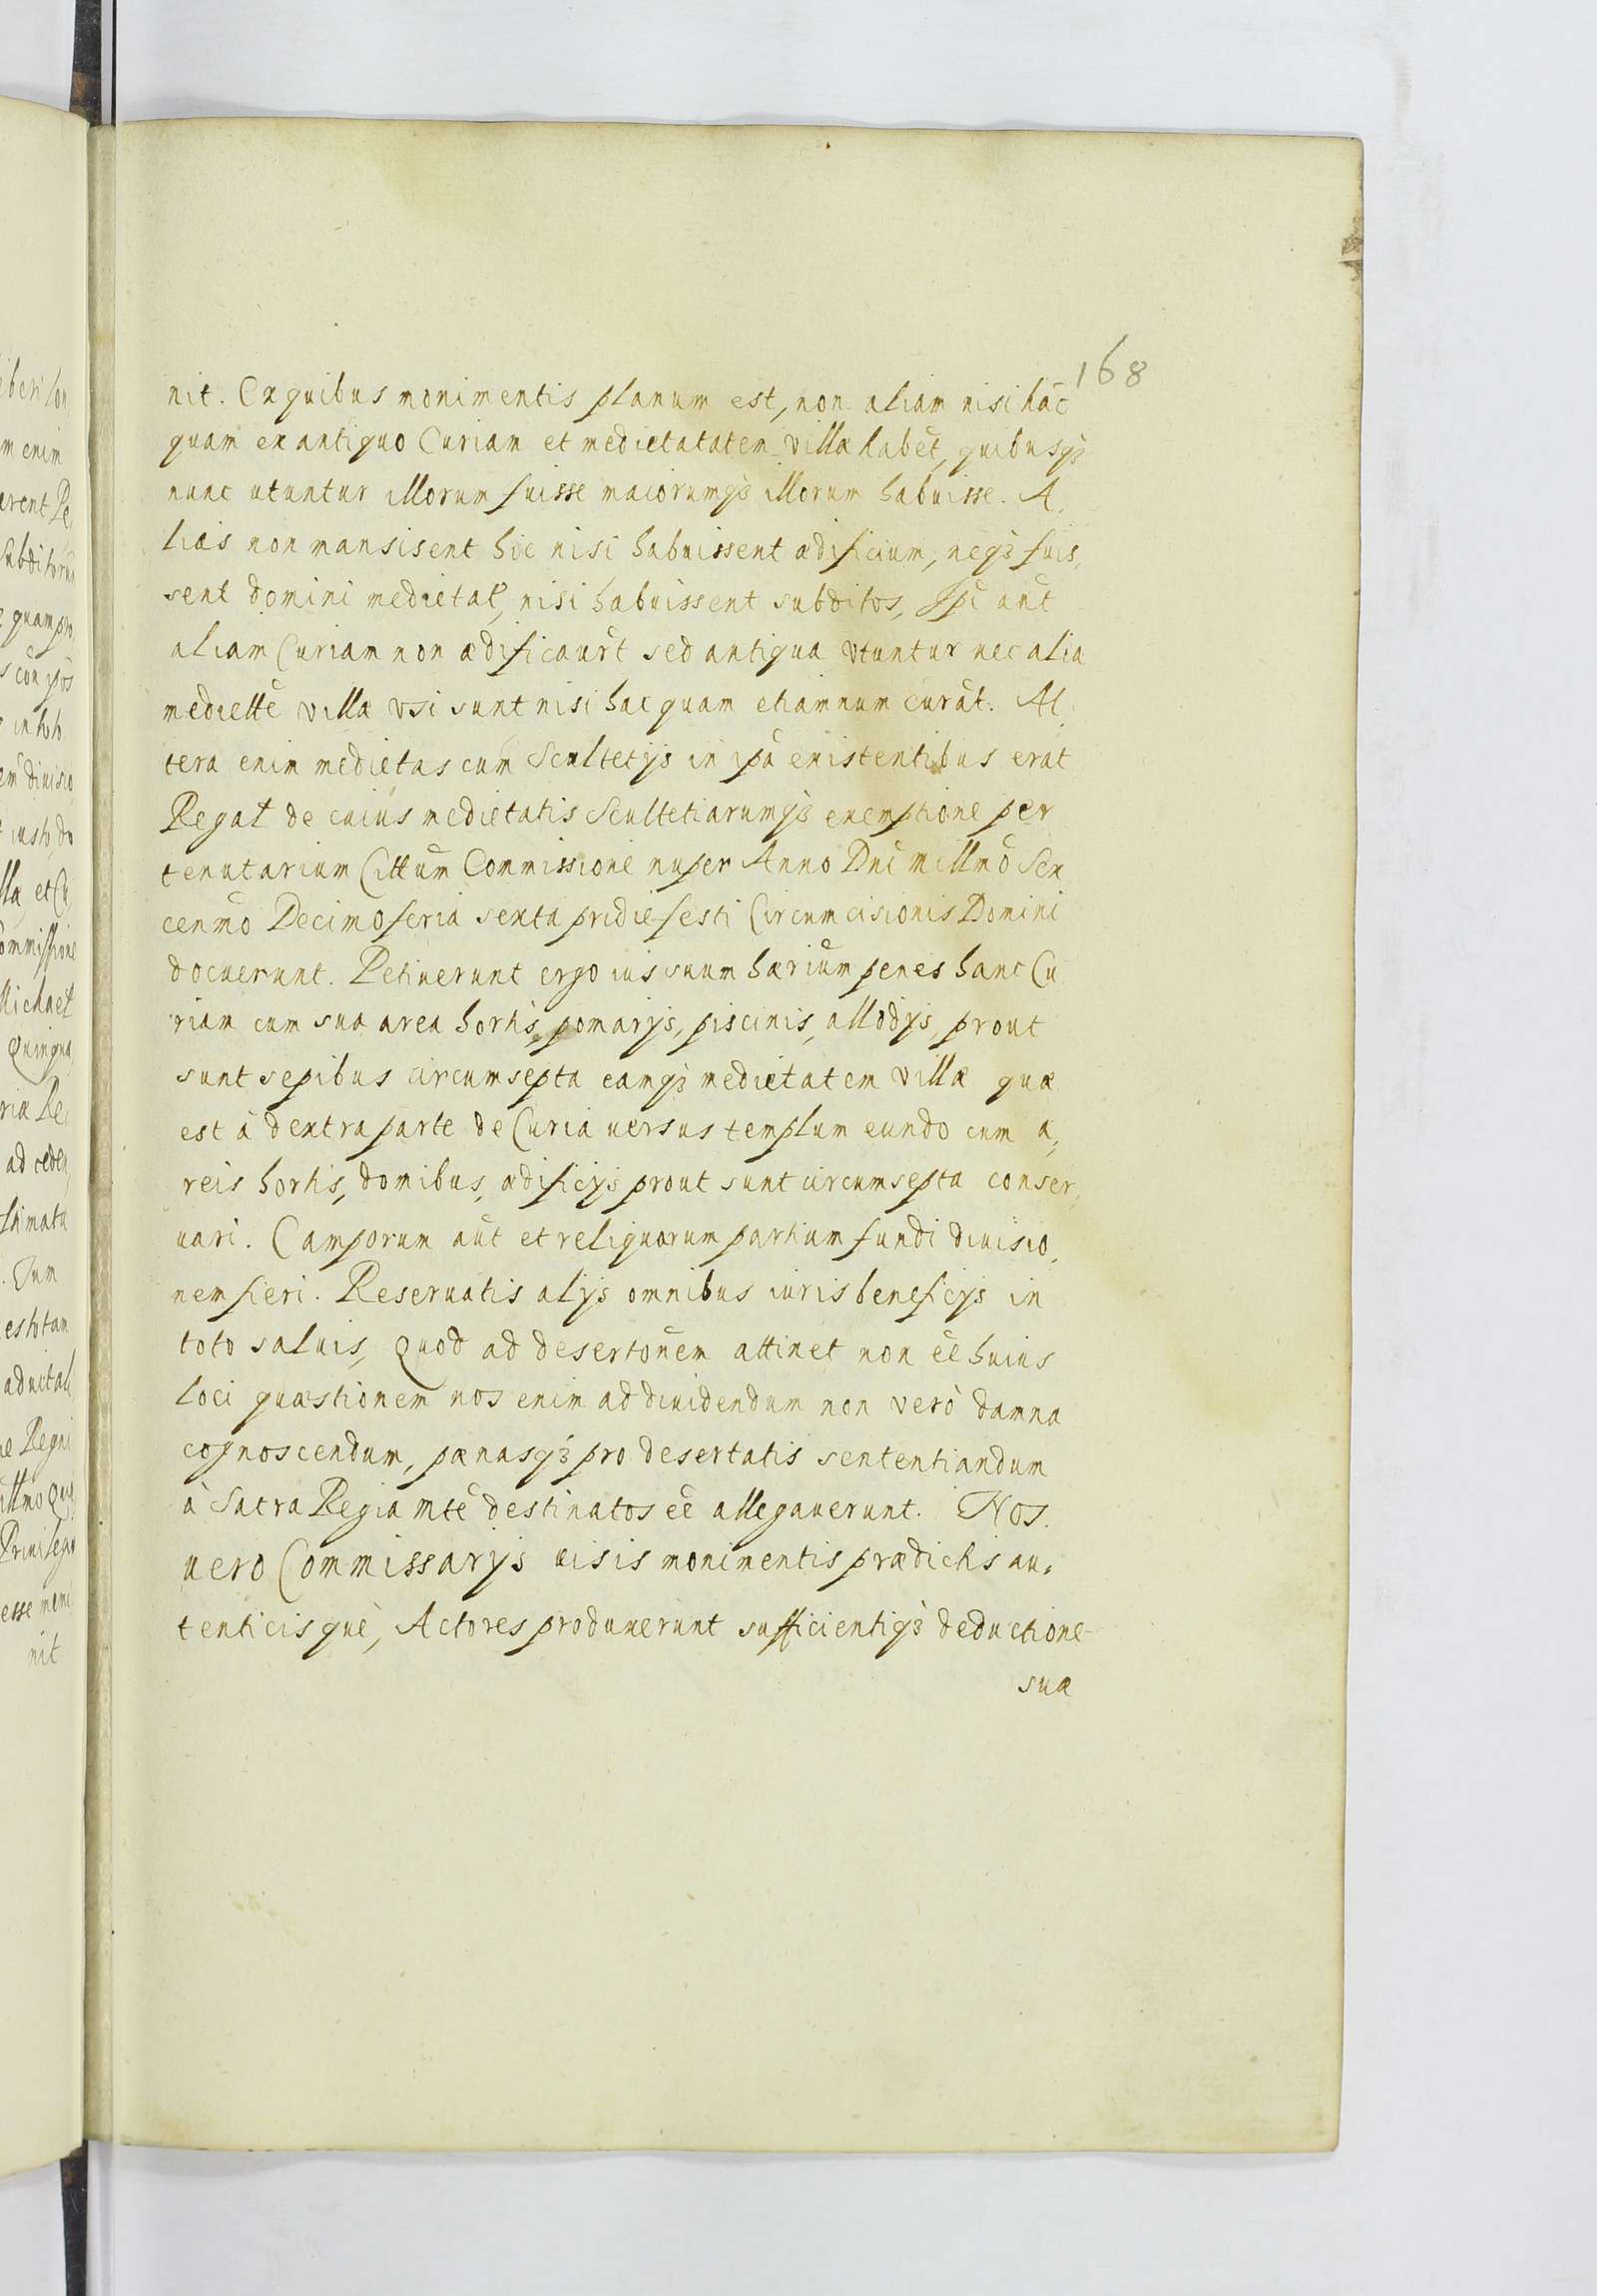 168
nit. Ex quibus monimentis planum est, non aliam nisi hac̃
quam ex antiquo Curiam et medietatatem villæ habet̃, quibusqꝫ
nunc utuntur illorum fuisse maiorumqꝫ illorum habuisse. A,
lias non mansisent hic nisi habuissent ædificium, neqꝫ fuis,
sent domini medietat̃, nisi habuissent subditos, Ip̃i aut̃
aliam Curiam non ædificaũrt sed antiqua vtuntur nec alia
mediette villæ vsi sunt nisi hac quam etiamnum curat̃. Al,
tera enim medietas cum Scultetys in ip̃a existentibus erat
Regal de cuius medietatis Scultetiarumqꝫ exemptione per
tenutarium Citt̃um Commissione nuper Anno Dni millmo Sex
cenmo Decimo feria sexta pridie festi Circumcisionis Domini
docuerunt. Petiuerunt ergo ius suum hærium penes hanc Cu
riam cum sua area hortis, pomarys, piscinis, allodys, prout
sunt sepibus circumsepta eamqꝫ medietatem villæ quæ
est à dextra parte de Curia uersus templum eundo cum a,
reis hortis, domibus, ædificys prout sunt circumsepta conser,
uari. Camporum aut̃ et reliquorum partium fundi diuisio,
nem fieri. Reseruatis alys omnibus iuris beneficys in
toto saluis, Quod ad desertoñem attinet non eẽ huius
loci quæstionem nos enim ad diuidendum non verò damna
cognoscendum, pænasqꝫ pro desertatis sententiandum
à Sacra Regia Mtẽ destinatos eẽ allegauerunt. Nos.
uero Commissarys uisis monimentis prædictis au,
tenticisquè, Actores produxerunt sufficientiqꝫ deductione
suæ